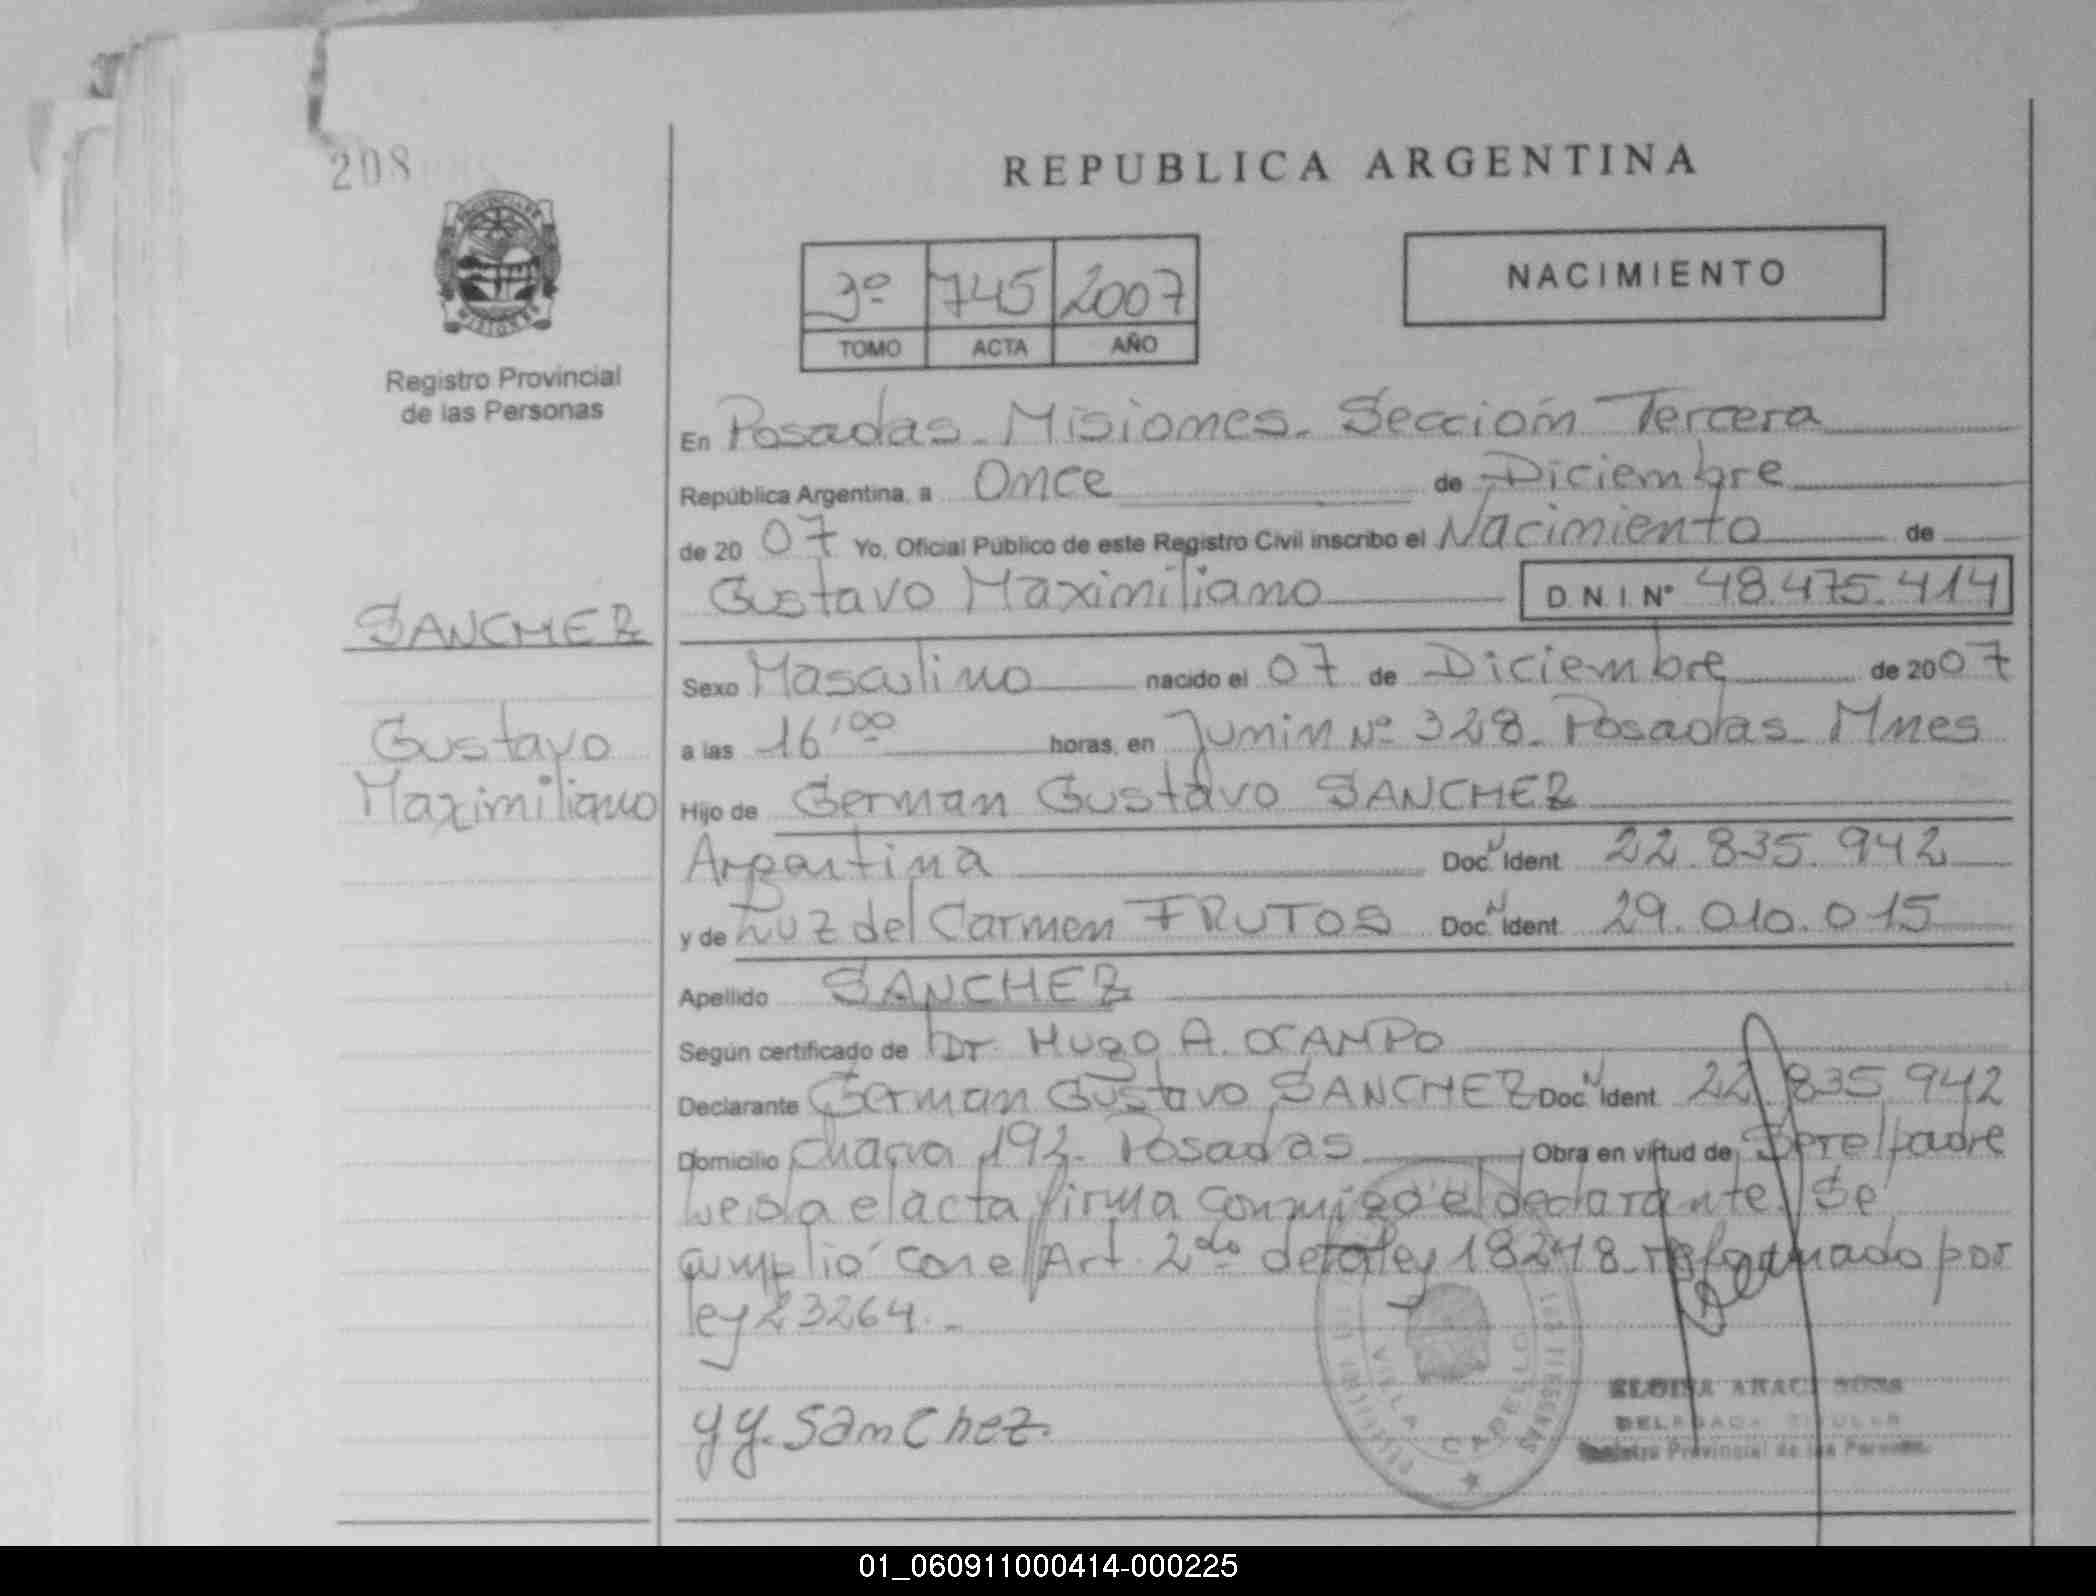 208
REPUBLICA ARGENTINA
3º 745 2007
TOMO ACTA AÑO
NACIMIENTO
PROVINCIA DE
MISIONES
Registro Provincial
de las Personas
En Posadas - Misiones - Sección Tercera
República Argentina, a Once de Diciembre
de 20 07 Yo, Oficial Público de este Registro Civil inscribo el Nacimiento de
Gustavo Maximiliano D.N.I. Nº 48.475.414
SANCHEZ
Sexo Masculino nacido el 07 de Diciembre de 2007
Gustavo
Maximiliano
a las 16'00 horas, en Junin Nº 328 - Posadas - Mnes
Hijo de German Gustavo SANCHEZ
Argentina Doc. N Ident 22.835.942
y de Luz del Carmen FRUTOS Doc. N Ident 29.010.015
Apellido SANCHEZ
Según certificado de Dr. Hugo A. OCAMPO
Declarante German Gustavo SANCHEZ Doc. N Ident. 22.835.942
Domicilio Chacra 192 - Posadas Obra en virtud de Ser el padre
Leida el acta firma conmigo el declarante. Se
cumplió con el Art. 2do de la ley 18248 - reformado por
ley 23264.-
yy. Sanchez.
VILLA CABELLO
DELEGADA TITULAR
Registro Provincial de las Personas
01_060911000414-000225